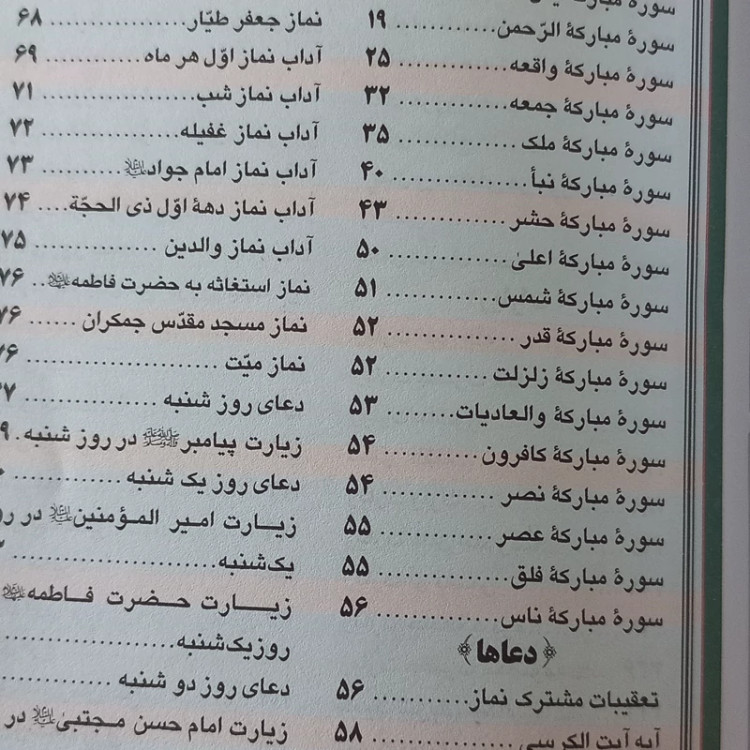 سورهٔ مبارکهٔ
سورهٔ مبارکهٔ الرّحمن ............ ۱۹
سورهٔ مبارکهٔ واقعه ............ ۲۵
سورهٔ مبارکهٔ جمعه ............ ۳۲
سورهٔ مبارکهٔ ملک ............ ۳۵
سورهٔ مبارکهٔ نبأ ............ ۴۰
سورهٔ مبارکهٔ حشر ............ ۴۳
سورهٔ مبارکهٔ اعلیٰ ............ ۵۰
سورهٔ مبارکهٔ شمس ............ ۵۱
سورهٔ مبارکهٔ قدر ............ ۵۲
سورهٔ مبارکهٔ زلزلت ............ ۵۲
سورهٔ مبارکهٔ والعادیات ........ ۵۳
سورهٔ مبارکهٔ کافرون ............ ۵۴
سورهٔ مبارکهٔ نصر ............ ۵۴
سورهٔ مبارکهٔ عصر ............ ۵۵
سورهٔ مبارکهٔ فلق ............ ۵۵
سورهٔ مبارکهٔ ناس ............ ۵۶
﴿دعاها﴾
تعقیبات مشترک نماز ............ ۵۶
آیه آیت الکرسی ............ ۵۸
نماز جعفر طیّار ............ ۶۸
آداب نماز اوّل هر ماه ............ ۶۹
آداب نماز شب ............ ۷۱
آداب نماز غفیله ............ ۷۲
آداب نماز امام جواد علیه‌السلام .......... ۷۳
آداب نماز دههٔ اوّل ذی الحجّة .... ۷۴
آداب نماز والدین ............ ۷۵
نماز استغاثه به حضرت فاطمه علیهاالسلام .. ۷۶
نماز مسجد مقدّس جمکران ...... ۷۶
نماز میّت ............ ۷۶
دعای روز شنبه ............
زیارت پیامبر ﷺ در روز شنبه .
دعای روز یک شنبه ............
زیارت امیر المؤمنین علیه‌السلام در
یک‌شنبه ............
زیارت حضرت فاطمه علیهاالسلام
روزیک‌شنبه ............
دعای روز دو شنبه ............
زیارت امام حسن مجتبیٰ علیه‌السلام در